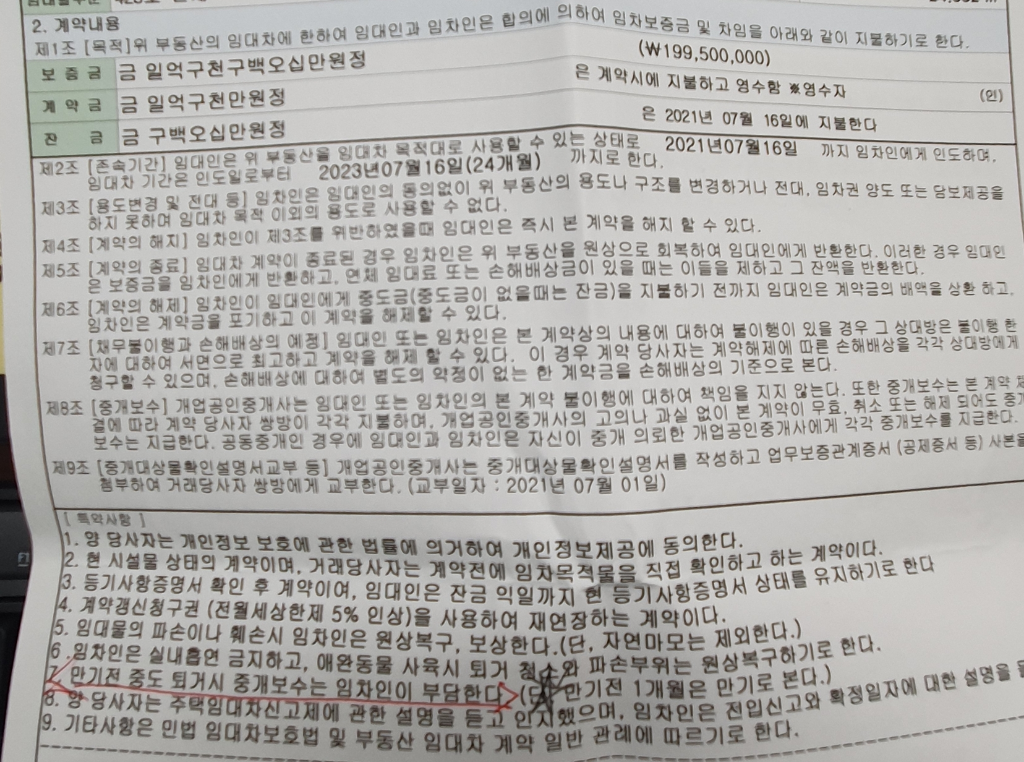 2. 계약내용
제1조 [목적]위 부동산의 임대차에 한하여 임대인과 임차인은 합의에 의하여 임차보증금 및 차임을 아래와 같이 지불하기로 한다.
보 증 금 금 일억구천구백오십만원정 (₩199,500,000)
계 약 금 금 일억구천만원정 은 계약시에 지불하고 영수함 ※영수자 (인)
잔 금 금 구백오십만원정 은 2021년 07월 16일에 지불한다
제2조 [존속기간] 임대인은 위 부동산을 임대차 목적대로 사용할 수 있는 상태로 2021년07월16일 까지 임차인에게 인도하며,
임대차 기간은 인도일로부터 2023년07월16일(24개월) 까지로 한다.
제3조 [용도변경 및 전대 등] 임차인은 임대인의 동의없이 위 부동산의 용도나 구조를 변경하거나 전대, 임차권 양도 또는 담보제공을
하지 못하며 임대차 목적 이외의 용도로 사용할 수 없다.
제4조 [계약의 해지] 임차인이 제3조를 위반하였을때 임대인은 즉시 본 계약을 해지 할 수 있다.
제5조 [계약의 종료] 임대차 계약이 종료된 경우 임차인은 위 부동산을 원상으로 회복하여 임대인에게 반환한다. 이러한 경우 임대인
은 보증금을 임차인에게 반환하고, 연체 임대료 또는 손해배상금이 있을 때는 이들을 제하고 그 잔액을 반환한다.
제6조 [계약의 해제] 임차인이 임대인에게 중도금(중도금이 없을때는 잔금)을 지불하기 전까지 임대인은 계약금의 배액을 상환 하고,
임차인은 계약금을 포기하고 이 계약을 해제할 수 있다.
제7조 [채무불이행과 손해배상의 예정] 임대인 또는 임차인은 본 계약상의 내용에 대하여 불이행이 있을 경우 그 상대방은 불이행 한
자에 대하여 서면으로 최고하고 계약을 해제 할 수 있다. 이 경우 계약 당사자는 계약해제에 따른 손해배상을 각각 상대방에게
청구할 수 있으며, 손해배상에 대하여 별도의 약정이 없는 한 계약금을 손해배상의 기준으로 본다.
제8조 [중개보수] 개업공인중개사는 임대인 또는 임차인의 본 계약 불이행에 대하여 책임을 지지 않는다. 또한 중개보수는 본 계약 체
결에 따라 계약 당사자 쌍방이 각각 지불하며, 개업공인중개사의 고의나 과실 없이 본 계약이 무효, 취소 또는 해제 되어도 중개
보수는 지급한다. 공동중개인 경우에 임대인과 임차인은 자신이 중개 의뢰한 개업공인중개사에게 각각 중개보수를 지급한다.
제9조 [중개대상물확인설명서교부 등] 개업공인중개사는 중개대상물확인설명서를 작성하고 업무보증관계증서 (공제증서 등) 사본을
첨부하여 거래당사자 쌍방에게 교부한다. (교부일자 : 2021년 07월 01일)
[ 특약사항 ]
1. 양 당사자는 개인정보 보호에 관한 법률에 의거하여 개인정보제공에 동의한다.
2. 현 시설물 상태의 계약이며, 거래당사자는 계약전에 임차목적물을 직접 확인하고 하는 계약이다.
3. 등기사항증명서 확인 후 계약이여, 임대인은 잔금 익일까지 현 등기사항증명서 상태를 유지하기로 한다
4. 계약갱신청구권 (전월세상한제 5% 인상)을 사용하여 재연장하는 계약이다.
5. 임대물의 파손이나 훼손시 임차인은 원상복구, 보상한다.(단, 자연마모는 제외한다.)
6. 임차인은 실내흡연 금지하고, 애완동물 사육시 퇴거 청소와 파손부위는 원상복구하기로 한다.
7. 만기전 중도 퇴거시 중개보수는 임차인이 부담한다 (단, 만기전 1개월은 만기로 본다.)
8. 양 당사자는 주택임대차신고제에 관한 설명을 듣고 인지했으며, 임차인은 전입신고와 확정일자에 대한 설명을
9. 기타사항은 민법 임대차보호법 및 부동산 임대차 계약 일반 관례에 따르기로 한다.
F1